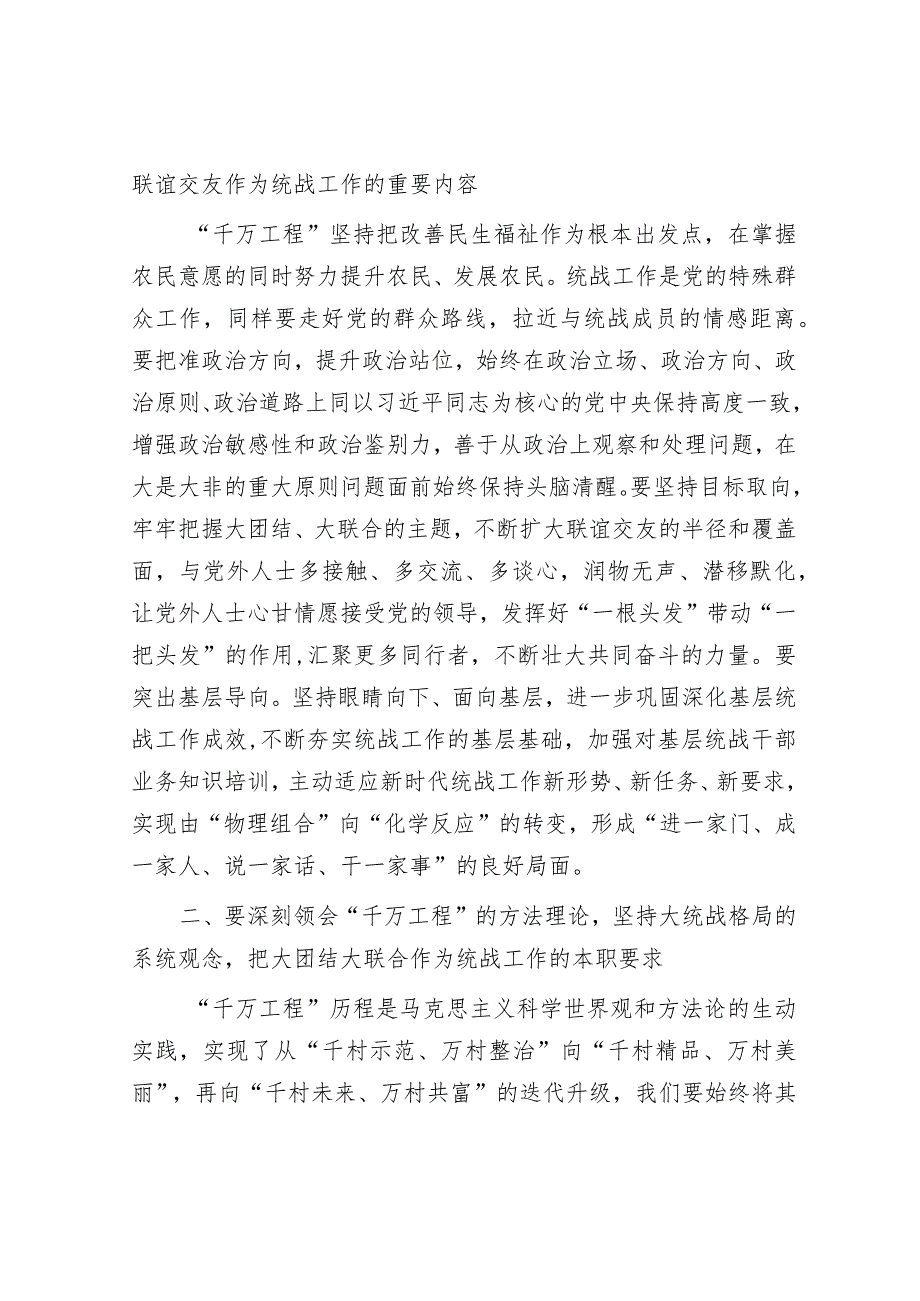 联谊交友作为统战工作的重要内容
“千万工程”坚持把改善民生福祉作为根本出发点，在掌握
农民意愿的同时努力提升农民、发展农民。统战工作是党的特殊群
众工作，同样要走好党的群众路线，拉近与统战成员的情感距离。
要把准政治方向，提升政治站位，始终在政治立场、政治方向、政
治原则、政治道路上同以习近平同志为核心的党中央保持高度一致，
增强政治敏感性和政治鉴别力，善于从政治上观察和处理问题，在
大是大非的重大原则问题面前始终保持头脑清醒。要坚持目标取向，
牢牢把握大团结、大联合的主题，不断扩大联谊交友的半径和覆盖
面，与党外人士多接触、多交流、多谈心，润物无声、潜移默化，
让党外人士心甘情愿接受党的领导，发挥好“一根头发”带动“一
把头发”的作用,汇聚更多同行者，不断壮大共同奋斗的力量。要
突出基层导向。坚持眼睛向下、面向基层，进一步巩固深化基层统
战工作成效,不断夯实统战工作的基层基础，加强对基层统战干部
业务知识培训，主动适应新时代统战工作新形势、新任务、新要求，
实现由“物理组合”向“化学反应”的转变，形成“进一家门、成
一家人、说一家话、干一家事”的良好局面。
二、要深刻领会“千万工程”的方法理论，坚持大统战格局的
系统观念，把大团结大联合作为统战工作的本职要求
“千万工程”历程是马克思主义科学世界观和方法论的生动
实践，实现了从“千村示范、万村整治”向“千村精品、万村美
丽”，再向“千村未来、万村共富”的迭代升级，我们要始终将其